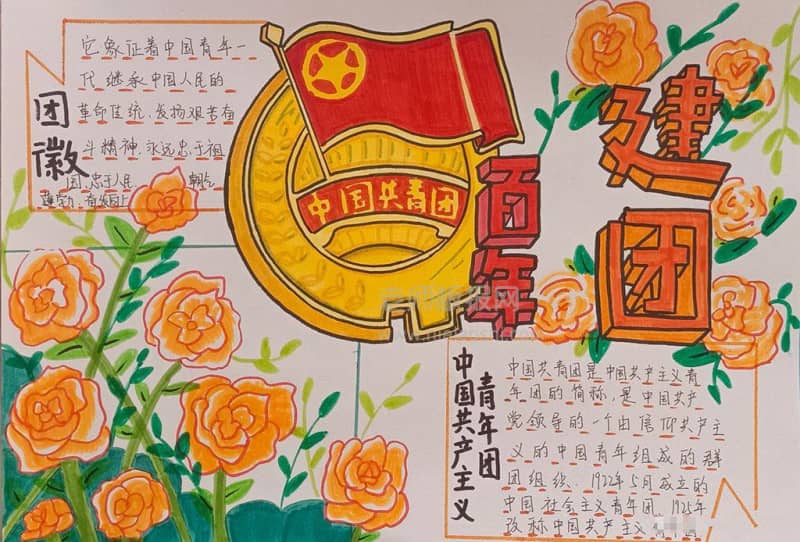 团徽
它象征着中国青年一
代继承中国人民的
革命传统,发扬艰苦奋
斗精神,永远忠于祖
国,忠于人民
中国共青团
百年
建团
中国共产主义
青年团
中国共青团是中国共产主义青
年团的简称,是中国共产
党领导的一个由信仰共产主
义的中国青年组成的群
团组织。1922年5月成立的
中国社会主义青年团,1925年
改称中国共产主义